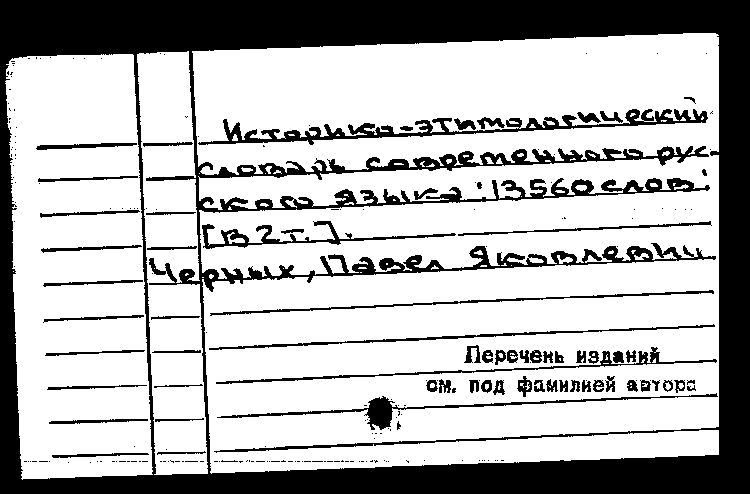 Историко-этимологический
словарь современного рус-
ского языка : 13560 слов :
[в 2 т.].
Черных, Павел Яковлевич
Перечень изданий
см. под фамилией автора